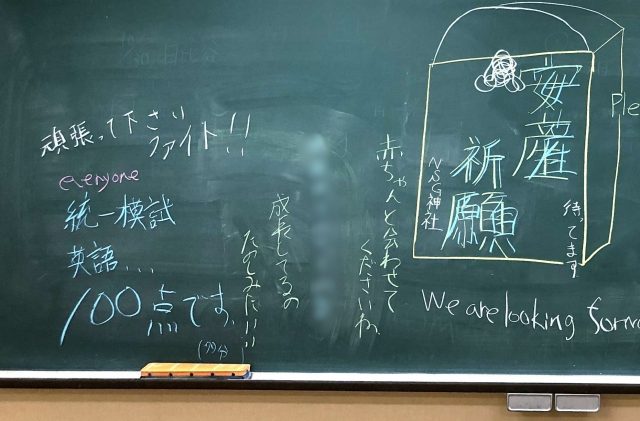 頑張って下さい
ファイト!!
everyone
統一模試
英語....
100点です。
成長してるの
たのしみだ!!!
赤ちゃんと会わせて
くださいね
安産
祈願
NSG神社
待ってます
Ple
We are looking forw